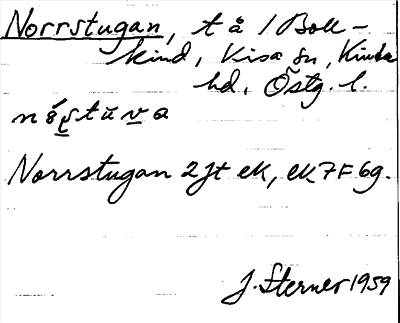 Norrstugan, t å / Boll-
kind, Kisa sn, Kinda
hd, Östg. l.
Norrstugan 2 jt ek, ek 7F 6g.
J. Sterner 1959